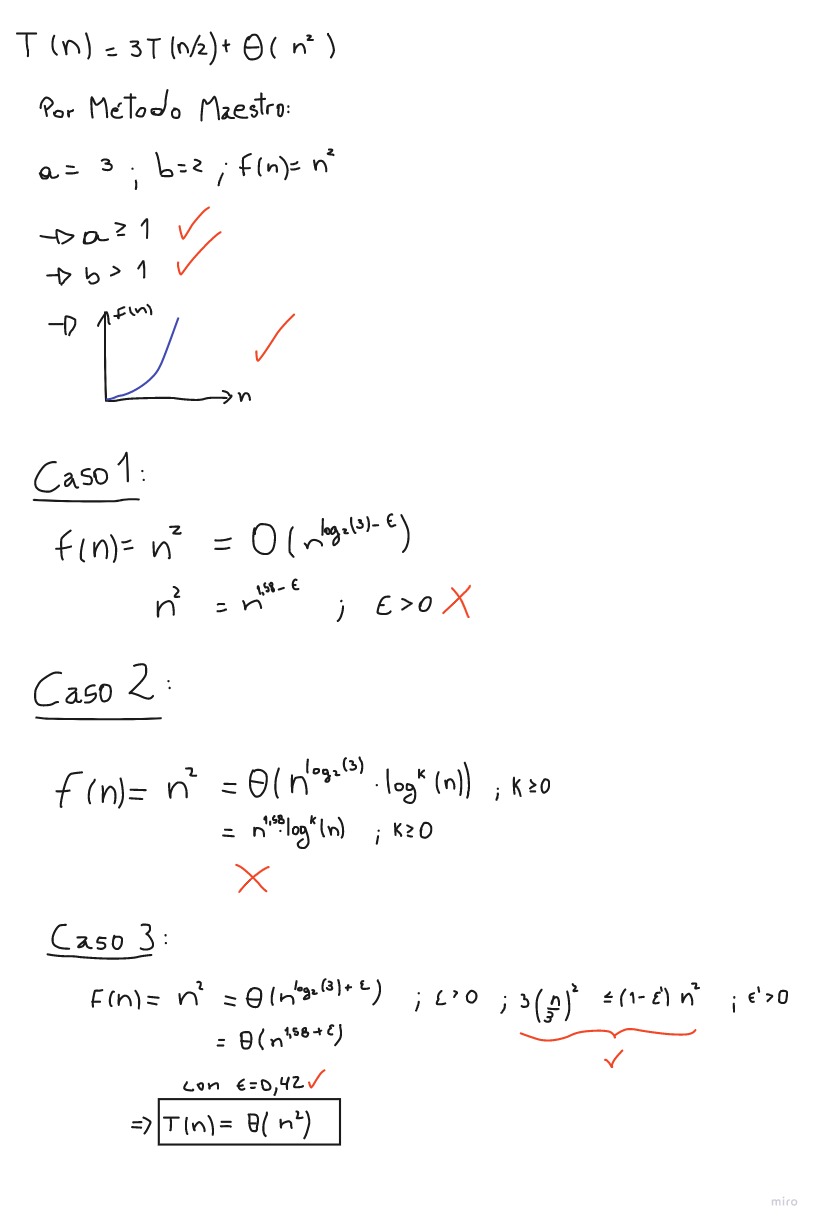 T(n) = 3T(n/2) + Θ(n²)
Por Método Maestro:
a = 3 ; b=2 ; f(n)= n²
→ a ≥ 1 ✓
→ b > 1 ✓
→ f(n) ✓
n
Caso 1:
f(n)= n² = O(n^(log₂(3) - ε))
n² = n^(1,58 - ε) ; ε > 0 X
Caso 2:
f(n)= n² = Θ(n^(log₂(3)) · log^k(n)) ; k ≥ 0
= n^(1,58) · log^k(n) ; k ≥ 0
X
Caso 3:
F(n)= n² = Θ(n^(log₂(3) + ε)) ; ε > 0 ; 3(n/3)² ≤ (1 - ε') n² ; ε' > 0
= Θ(n^(1,58 + ε)) ✓
con ε=0,42 ✓
=> T(n) = Θ(n²)
miro